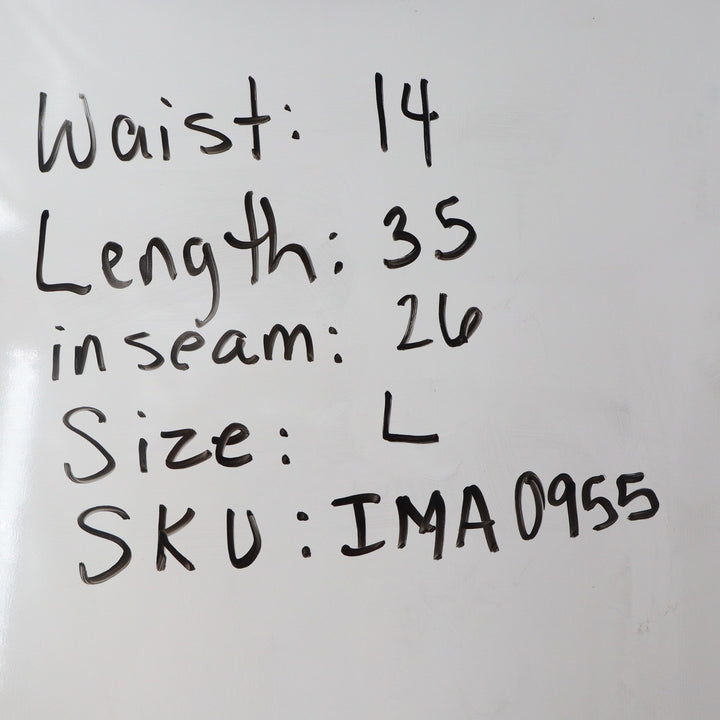 Waist: 14
Length: 35
inseam: 26
Size: L
SKU: IMA0955